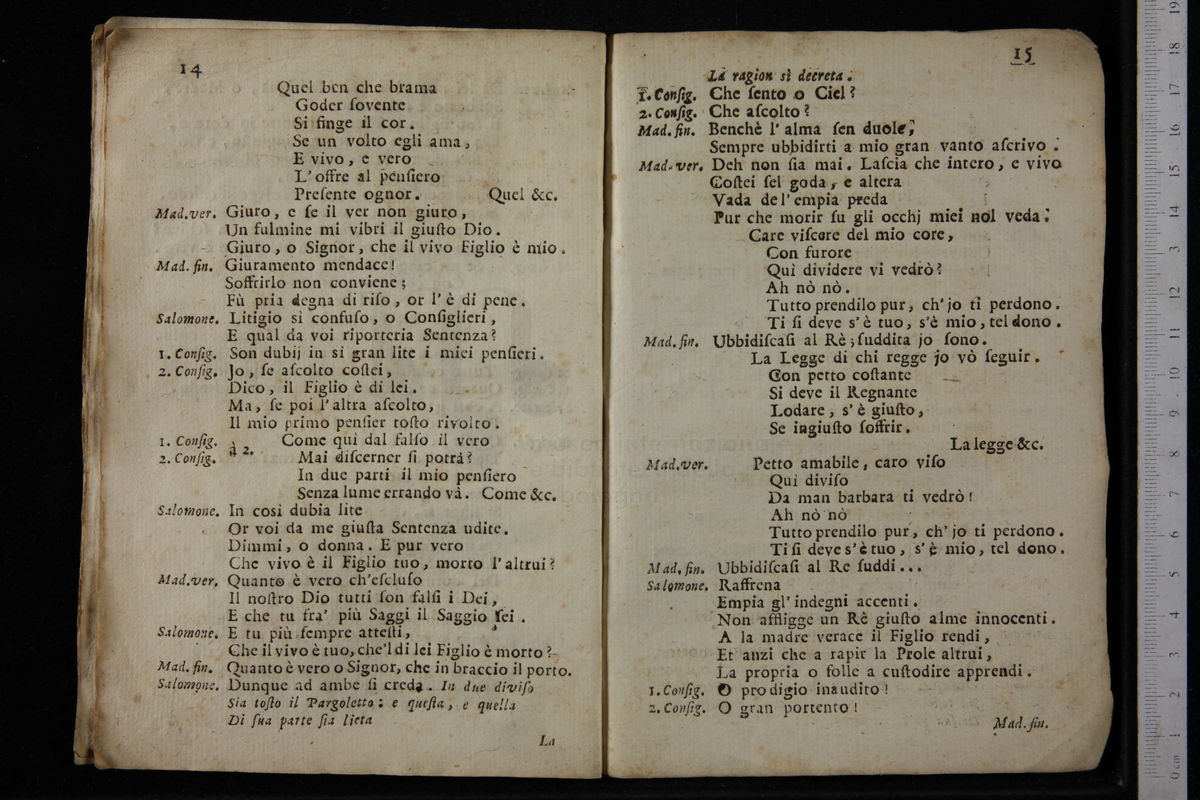 14
Quel ben che brama
Goder ſovente
Si finge il cor.
Se un volto egli ama,
E vivo, e vero
L'offre al penſiero
Preſente ognor. Quel &c.
Mad.ver. Giuro, e ſe il ver non giuro,
Un fulmine mi vibri il giuſto Dio.
Giuro, o Signor, che il vivo Figlio è mio.
Mad. fin. Giuramento mendace!
Soffrirlo non conviene;
Fù pria degna di riſo, or l'è di pene.
Salomone. Litigio sì confuſo, o Conſiglieri,
E qual da voi riporteria Sentenza?
1. Conſig. Son dubij in sì gran lite i miei penſieri.
2. Conſig. Jo, ſe aſcolto coſtei,
Dico, il Figlio è di lei.
Ma, ſe poi l'altra aſcolto,
Il mio primo penſier toſto rivolto.
1. Conſig. à 2. Come quì dal falſo il vero
2. Conſig. Mai diſcerner ſi potrà?
In due parti il mio penſiero
Senza lume errando và. Come &c.
Salomone. In così dubia lite
Or voi da me giuſta Sentenza udite.
Dimmi, o donna. E pur vero
Che vivo è il Figlio tuo, morto l'altrui?
Mad.ver. Quanto è vero ch'eſcluſo
Il noſtro Dio tutti ſon falſi i Dei,
E che tu fra' più Saggi il Saggio ſei.
Salomone. E tu più ſempre atteſti,
Che il vivo è tuo, che'l di lei Figlio è morto?
Mad. fin. Quanto è vero o Signor, che in braccio il porto.
Salomone. Dunque ad ambe ſi creda. In due diviſo
Sia toſto il Pargoletto: e queſta, e quella
Di ſua parte ſia lieta
La
15
La ragion sì decreta.
1. Conſig. Che ſento o Ciel?
2. Conſig. Che aſcolto?
Mad. fin. Benchè l'alma ſen duole,
Sempre ubbidirti a mio gran vanto aſcrivo.
Mad. ver. Deh non ſia mai. Laſcia che intero, e vivo
Coſtei ſel goda, e altera
Vada del'empia preda
Pur che morir ſu gli occhj miei nol veda.
Care viſcere del mio core,
Con furore
Quì dividere vi vedrò?
Ah nò nò.
Tutto prendilo pur, ch'jo ti perdono.
Ti ſi deve s'è tuo, s'è mio, tel dono.
Mad. fin. Ubbidiſcaſi al Rè; ſuddita jo ſono.
La Legge di chi regge jo vò ſeguir.
Con petto coſtante
Si deve il Regnante
Lodare, s'è giuſto,
Se ingiuſto ſoffrir.
La legge &c.
Mad.ver. Petto amabile, caro viſo
Quì diviſo
Da man barbara ti vedrò!
Ah nò nò
Tutto prendilo pur, ch'jo ti perdono.
Ti ſi deve s'è tuo, s'è mio, tel dono.
Mad. fin. Ubbidiſcaſi al Re ſuddi...
Salomone. Raffrena
Empia gl'indegni accenti.
Non affligge un Rè giuſto alme innocenti.
A la madre verace il Figlio rendi,
Et anzi che a rapir la Prole altrui,
La propria o folle a cuſtodire apprendi.
1. Conſig. O prodigio inaudito!
2. Conſig. O gran portento!
Mad. fin.
0 cm 1 2 3 4 5 6 7 8 9 10 11 12 13 14 15 16 17 18 19